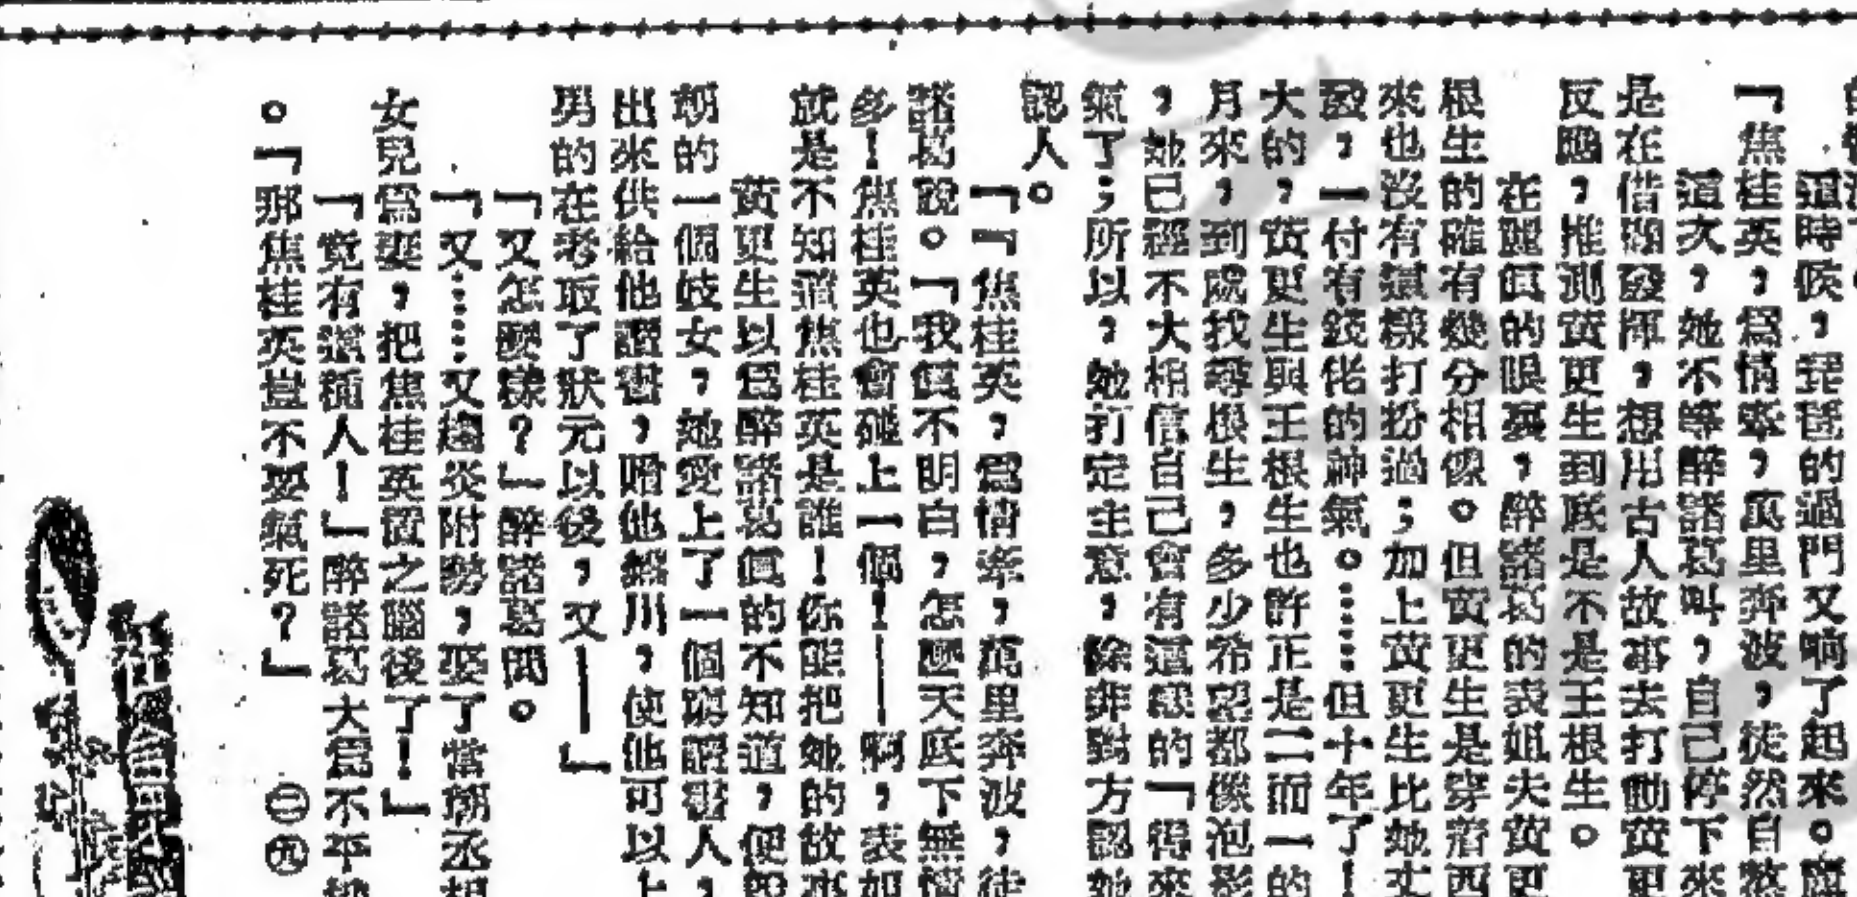 這時候，琵琶的過門又响了起來。
「焦桂英，爲情牽，萬里奔波，徒然自
這次，她不等醉諸葛叫，自己停下來
是在借題發揮，想用古人故事去打動黄更
反應，推測黄更生到底是不是王根生。
在麗眞的眼裏，醉諸葛的表姐夫黄更
根生的確有幾分相像。但黄更生是穿着西
來也沒有這樣打扮過；加上黄更生比她丈
發，一付有錢佬的神氣。……但十年了！
大的，黄更生與王根生也許正是二而一的
月來，到處找尋根生，多少希望都像泡影
，她已經不大相信自己會有這樣的「得來
氣了；所以，她打定主意，除非對方認她
認人。
「『焦桂英，爲情牽，萬里奔波，徒
諸葛說。「我眞不明白，怎麼天底下無情
多！焦桂英也會碰上一個！——啊，表姐
就是不知道焦桂英是誰！你能把她的故事
黄更生以爲醉諸葛眞的不知道，便說
胡的一個妓女，她愛上了一個窮讀書人，
出來供給他讀書，賠他盤川，使他可以上
男的在考取了狀元以後，又——」
「又怎麼樣？」醉諸葛問。
「又……又趨炎附勢，娶了當朝丞相
女兒爲妻，把焦桂英置之腦後了！」
「竟有這種人！」醉諸葛大爲不平
。「那焦桂英豈不要氣死？」　㊁㊈